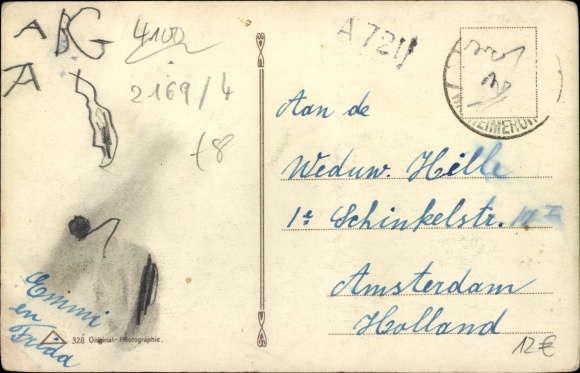 A B G
A
4100
2169/4
A 721
Emmi
en
Frida
328 Original-Photographie.
Aan de
Weduw. Hille
1e Schinkelstr.
Amsterdam
Holland
12€